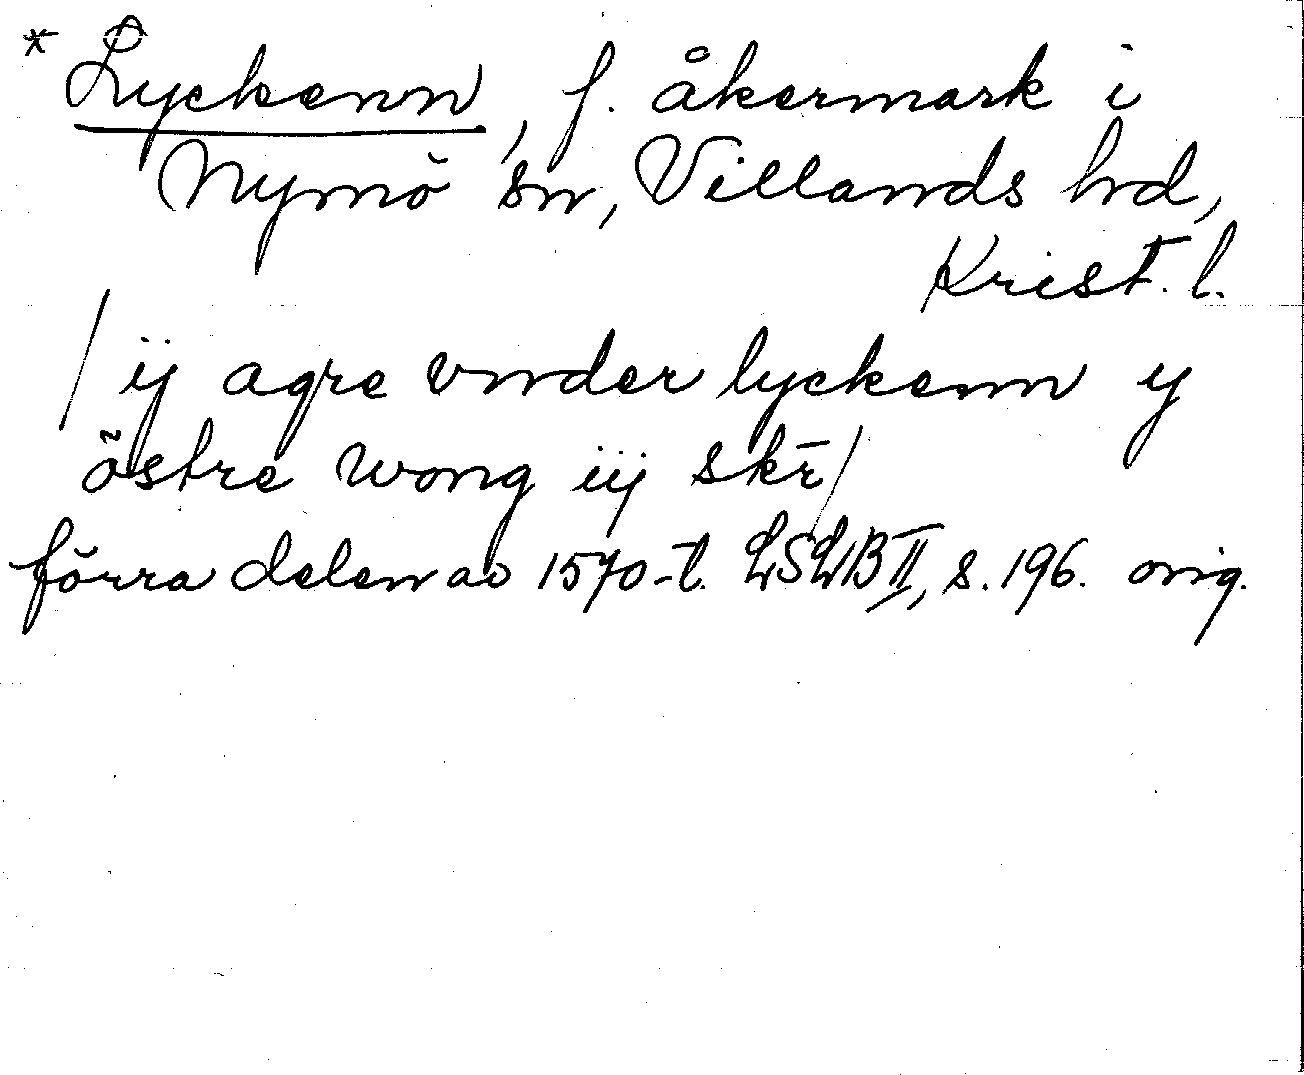 * Lyckenn, f. åkermark i
Nymö sn, Villands hd,
Krist. l.
/ ij agre vnder lyckenn y
östre wong iij skr̄ /
förra delen av 1570-t. LSLB II, s. 196. orig.